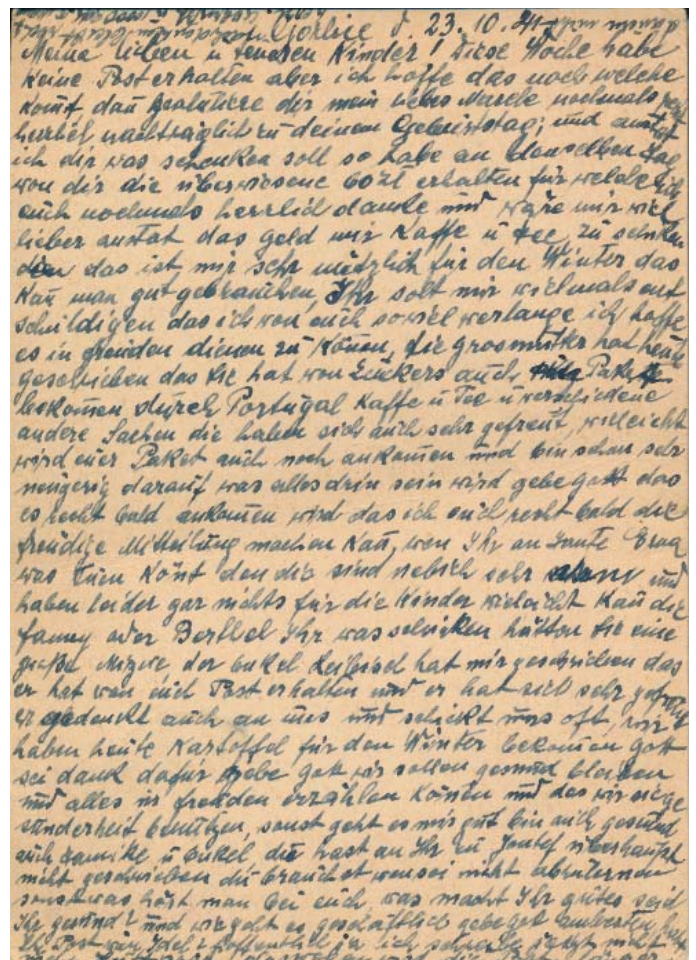 Gorlice d. 23.10.41
Meine lieben u teueren Kinder! Diese Woche habe
keine Post erhalten aber ich hoffe das noch welche
komt dan gratuliere dir mein liebes nochmals
herzlich nachträglich zu deinem Geburtstag; und anstat
ich dir was schenken soll so habe an denselben Tag
von dir die überwiesene 60 zł erhalten für welche ich
euch nochmals herzlich danke und wäre mir viel
lieber anstat das geld mir Kaffe u Tee zu schicken
den das ist mir sehr nützlich für den Winter das
kan man gut gebrauchen, Ihr solt mir vielmals ent
schuldigen das ich von euch soviel verlange ich hoffe
es in freuden dienen zu können, die grosmutter hat heute
geschrieben das sie hat von Zuckers auch Pakete
bekomen durch Portugal Kaffe u Tee u verschiedene
andere Sachen die haben sich auch sehr gefreut, villeicht
wird euer Paket auch noch ankomen und bin schon sehr
neugerig darauf was alles drin sein wird gebe gott das
es recht bald ankomen wird das ich euch recht bald die
freudige Mitteilung machen kan, wen Ihr an Tante
was tuen könt den die sind nebich sehr arm und
haben leider gar nichts für die Kinder vieleicht kan die
fanny oder Berthel Ihr was schicken hätten sie eine
große Mizwe der onkel hat mir geschrieben das
er hat von euch Post erhalten und er hat sich sehr gefreut
er gedenkt auch an uns und schickt uns oft, wir
haben heute Kartoffel für den Winter bekomen gott
sei dank dafür gebe gott wir sollen gesund bleiben
und alles in freuden erzählen können und das wir sie ge
sunderheit benützen, sonst geht es mir gut bin auch gesund
auch u onkel, du hast an Ihr zu überhaupt
nicht geschrieben du brauchst nicht
sonst was hört man bei euch, was macht Ihr gutes seid
Ihr gesund? und wie geht es geschäftlich gebe gott am besten
ich schreibe jetzt nicht